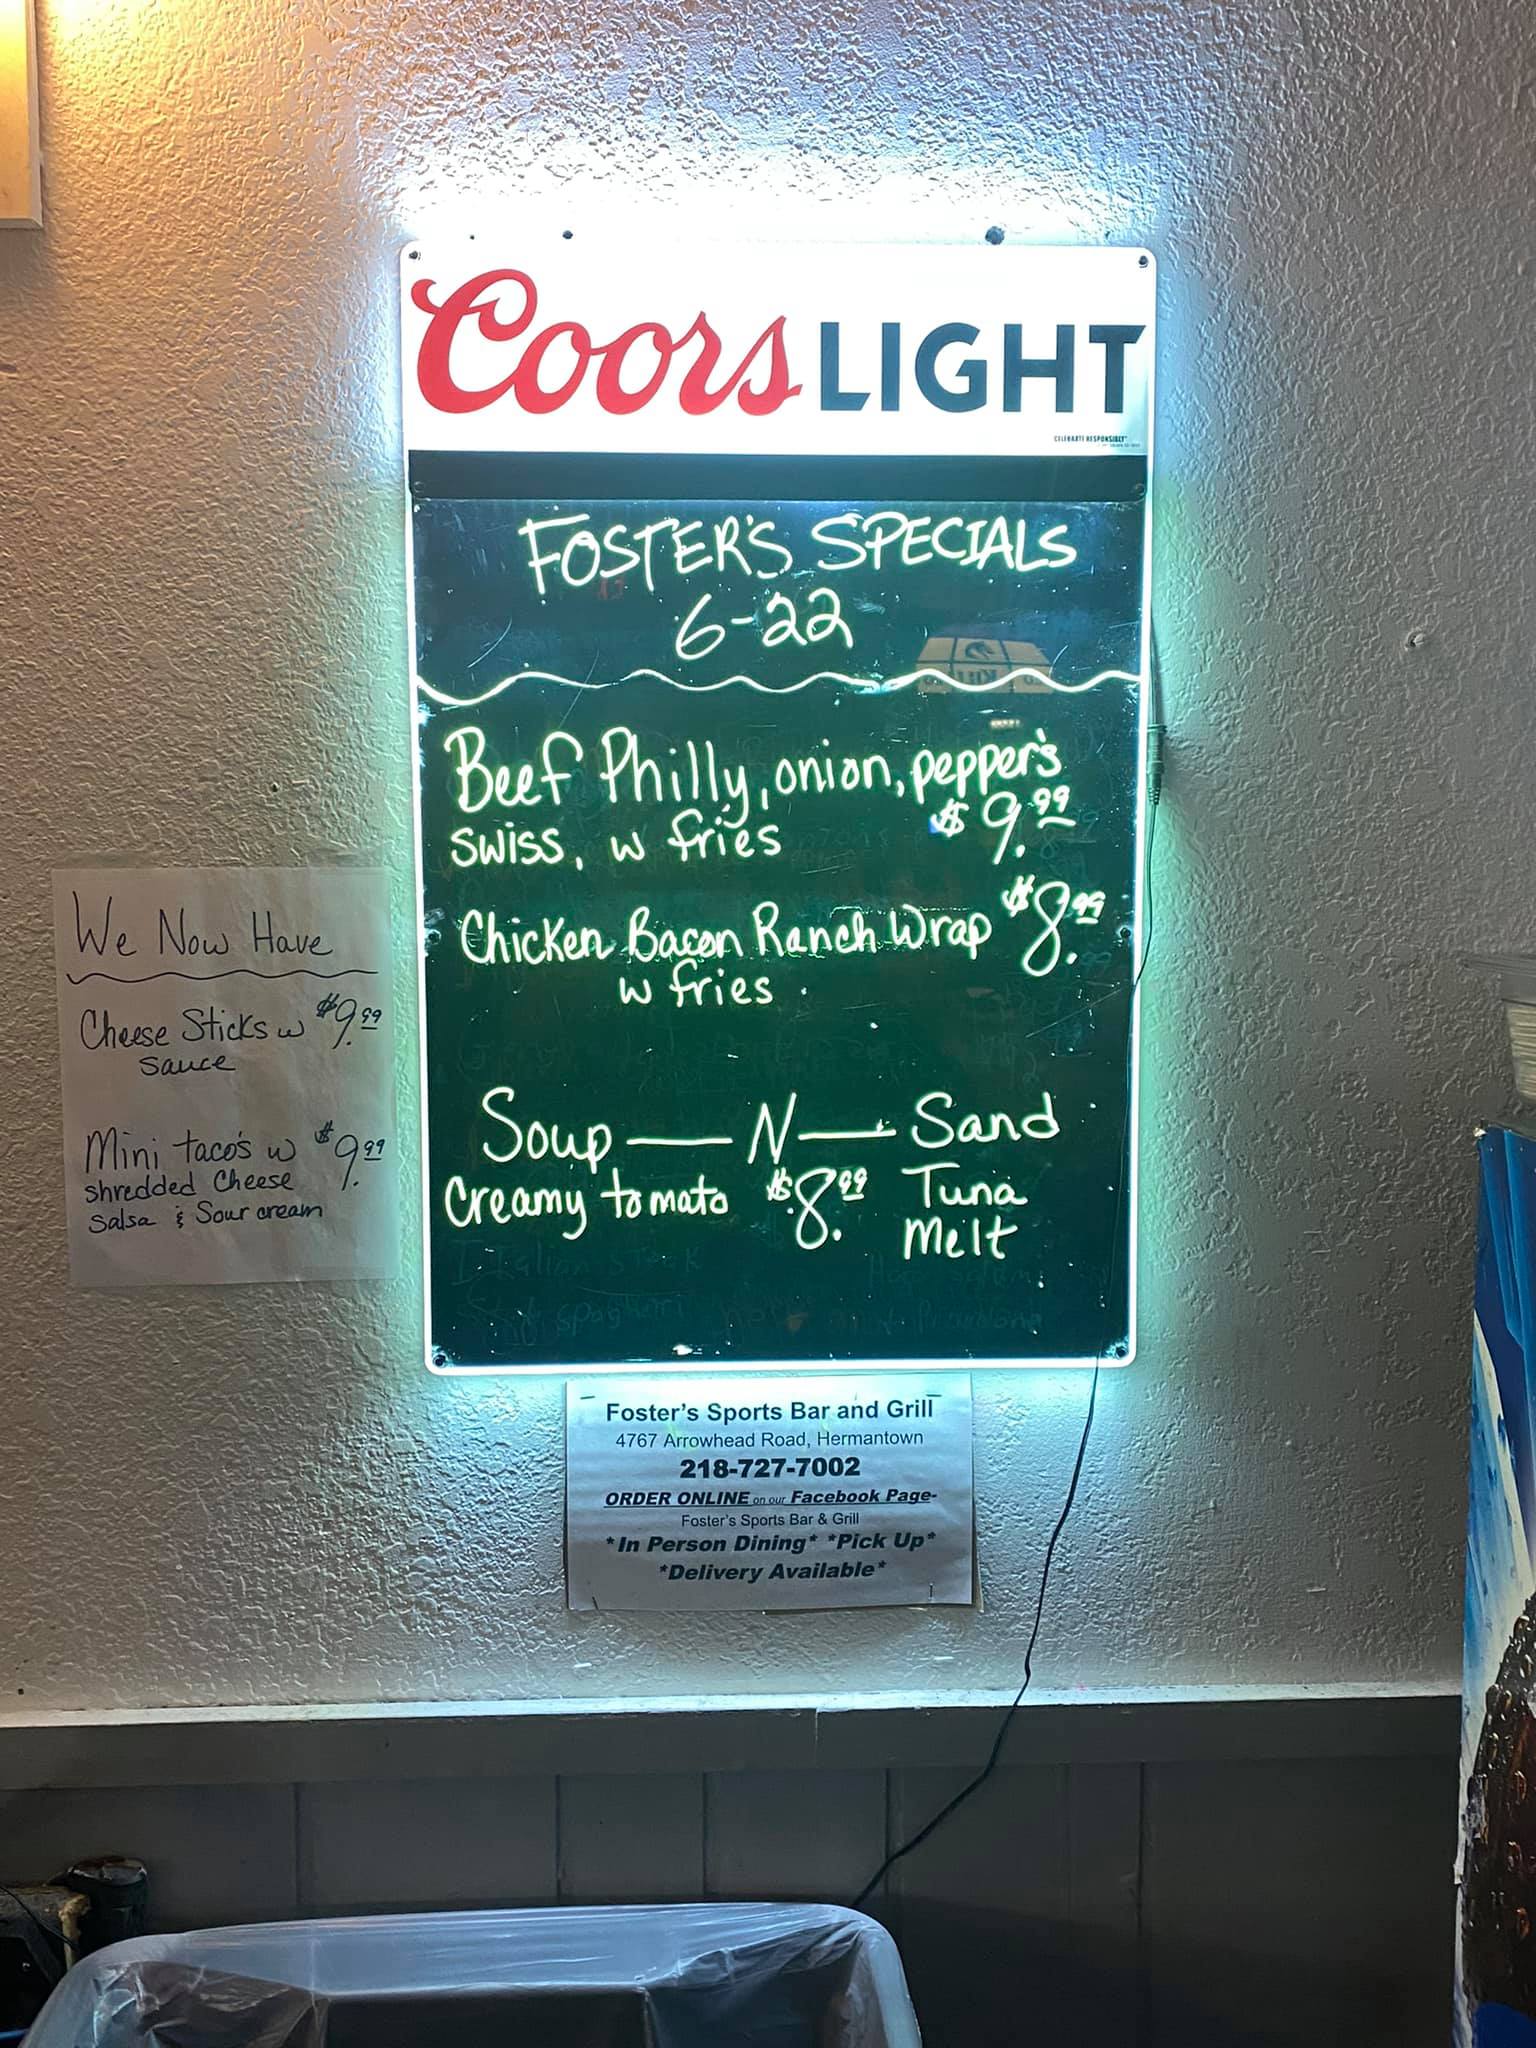 Coors LIGHT
CELEBRATE RESPONSIBLY
FOSTER'S SPECIALS
6-22
Beef Philly, onion, pepper's
swiss, w fries $9.99
Chicken Bacon Ranch Wrap $8.99
w fries
Soup — N — Sand
Creamy tomato $8.99 Tuna
Melt
We Now Have
Cheese Sticks w $9.99
sauce
Mini taco's w $9.99
shredded Cheese
Salsa & Sour cream
Foster's Sports Bar and Grill
4767 Arrowhead Road, Hermantown
218-727-7002
ORDER ONLINE on our Facebook Page-
Foster's Sports Bar & Grill
*In Person Dining* *Pick Up*
*Delivery Available*